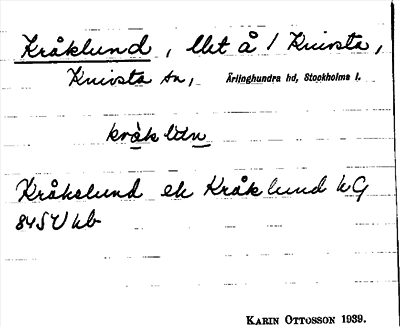 Kråklund, llet å / Knivsta,
Knivsta sn, Ärlinghundra hd, Stockholms l.
kråkldn
Kråkslund ek Kråklund hG
84SV hb
KARIN OTTOSSON 1939.